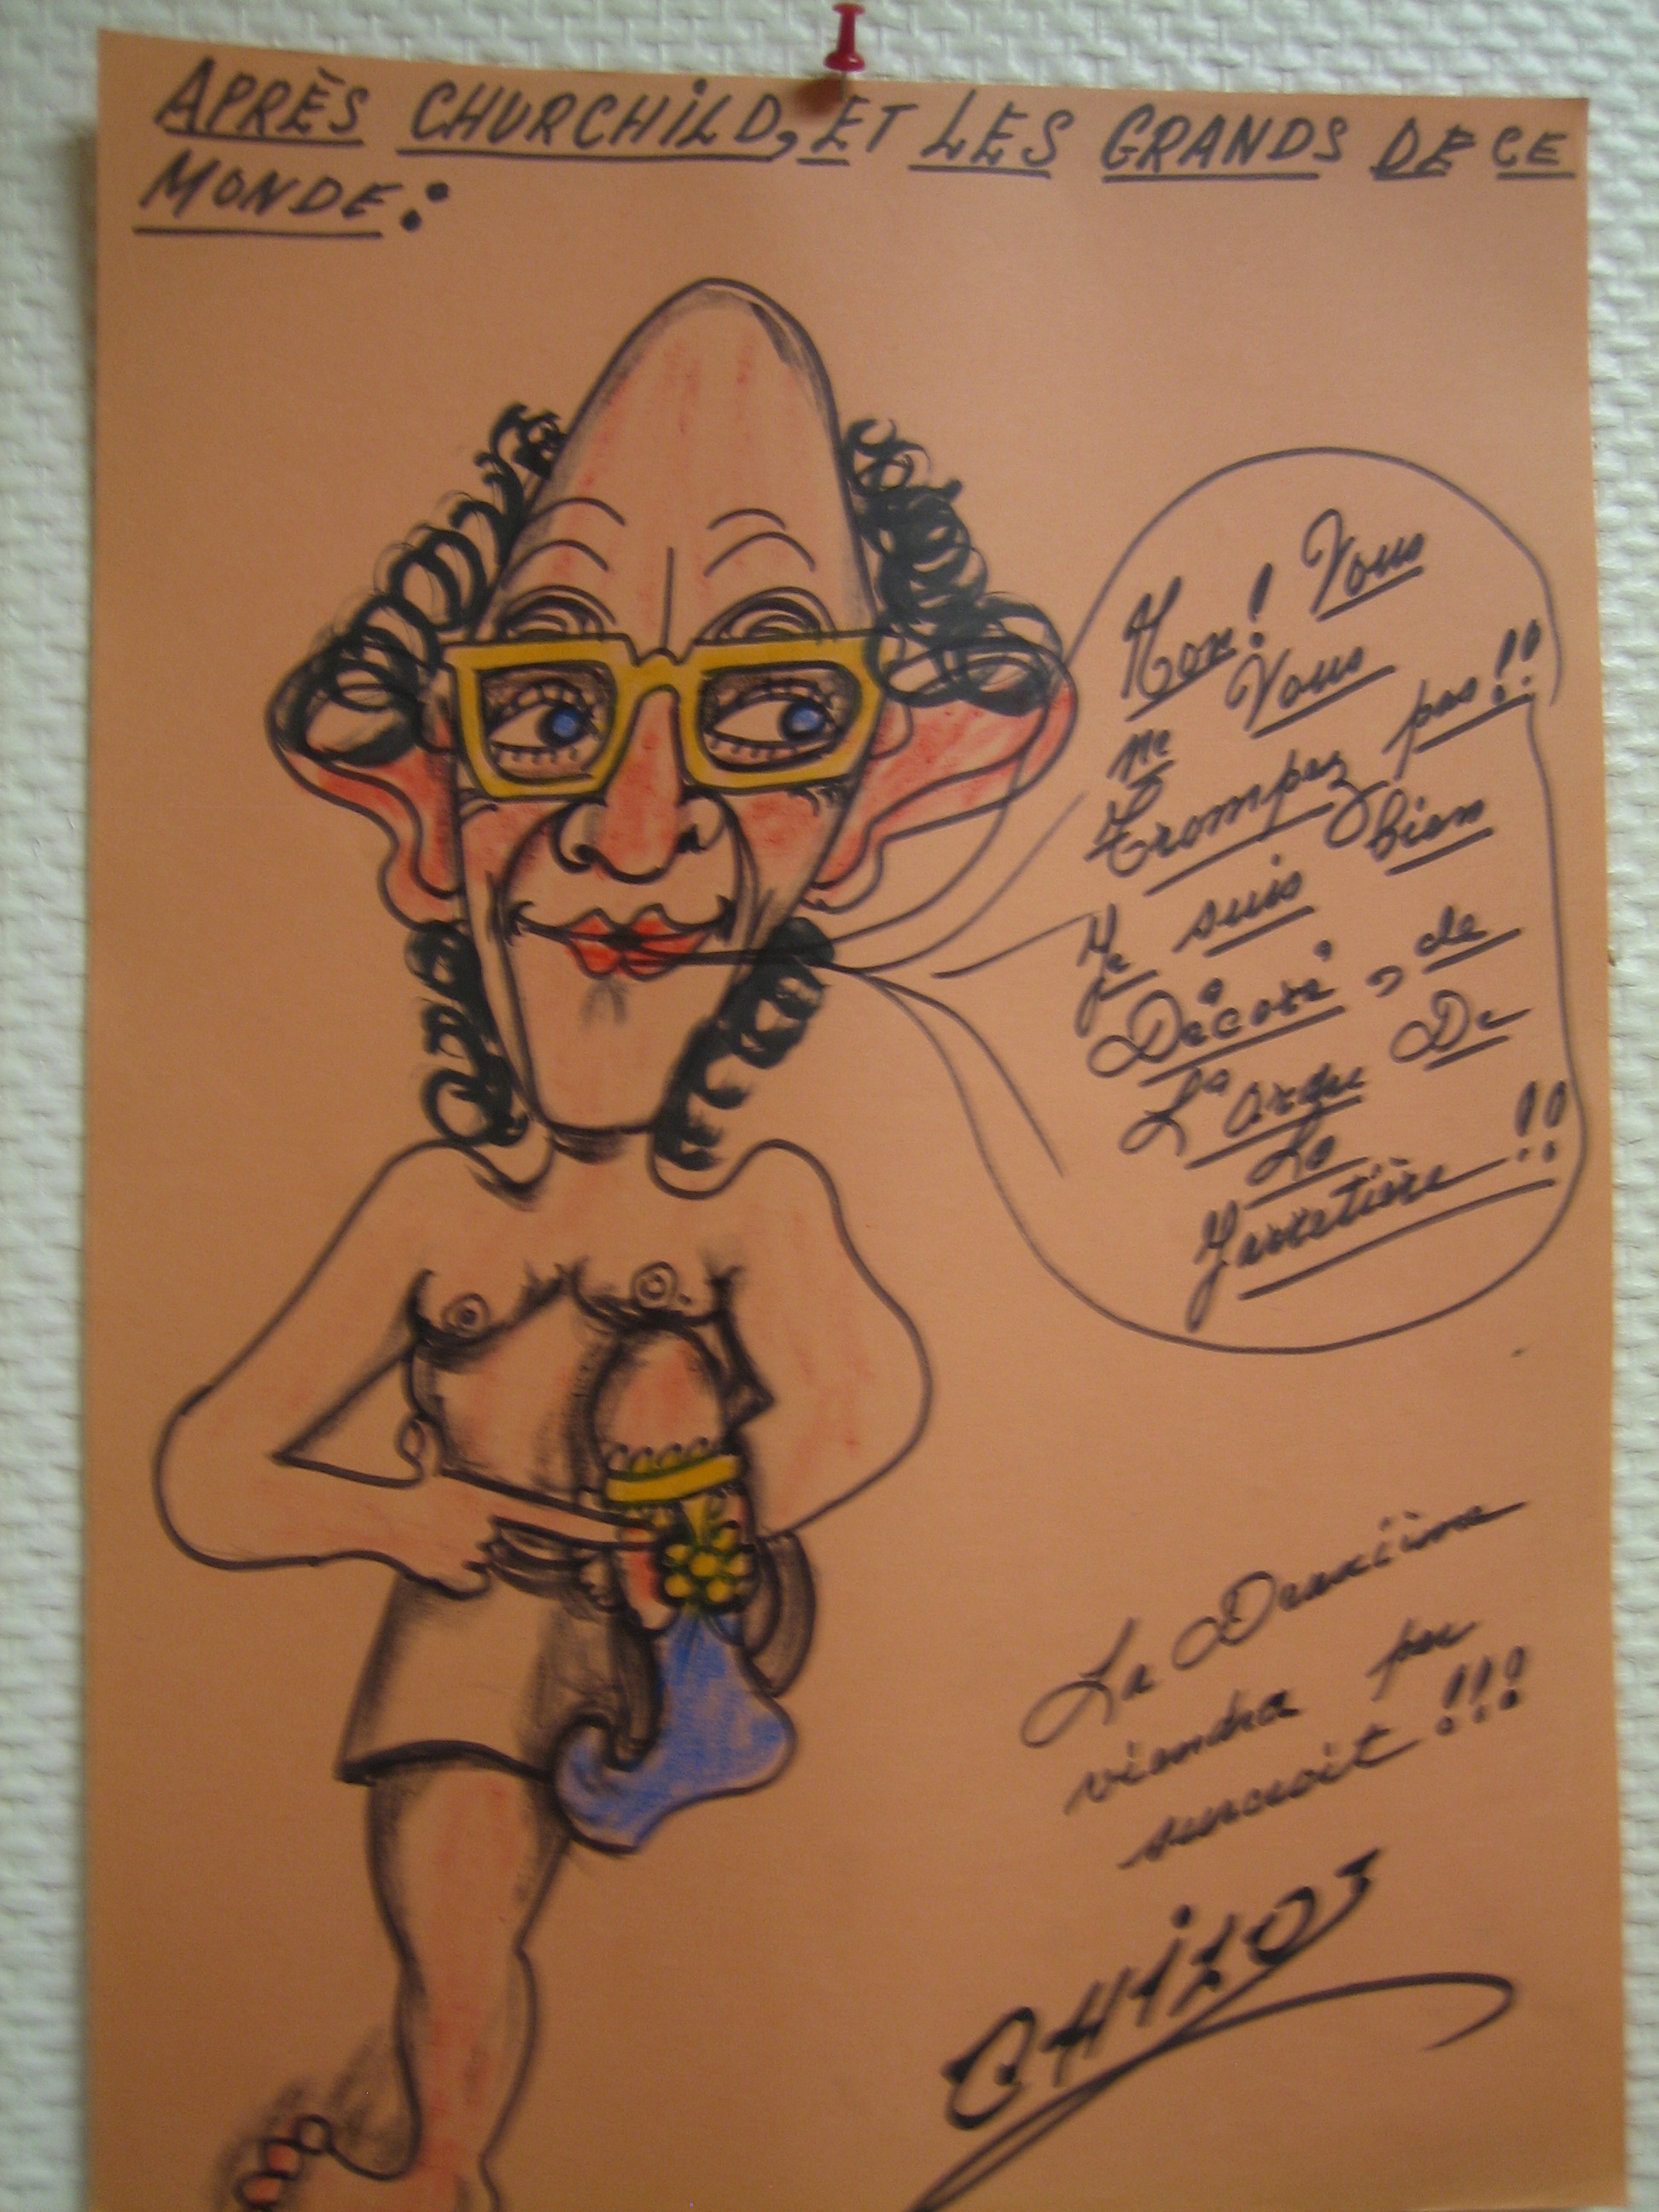 APRÈS CHURCHILD, ET LES GRANDS DE CE
MONDE:
Non! Vous
ne Vous
Trompez pas!!
Je suis bien
Décoré, de
L'ordre De
La
Jarretière!!
La Deuxiime
viendra par
surcroit!!!
CHIZOS